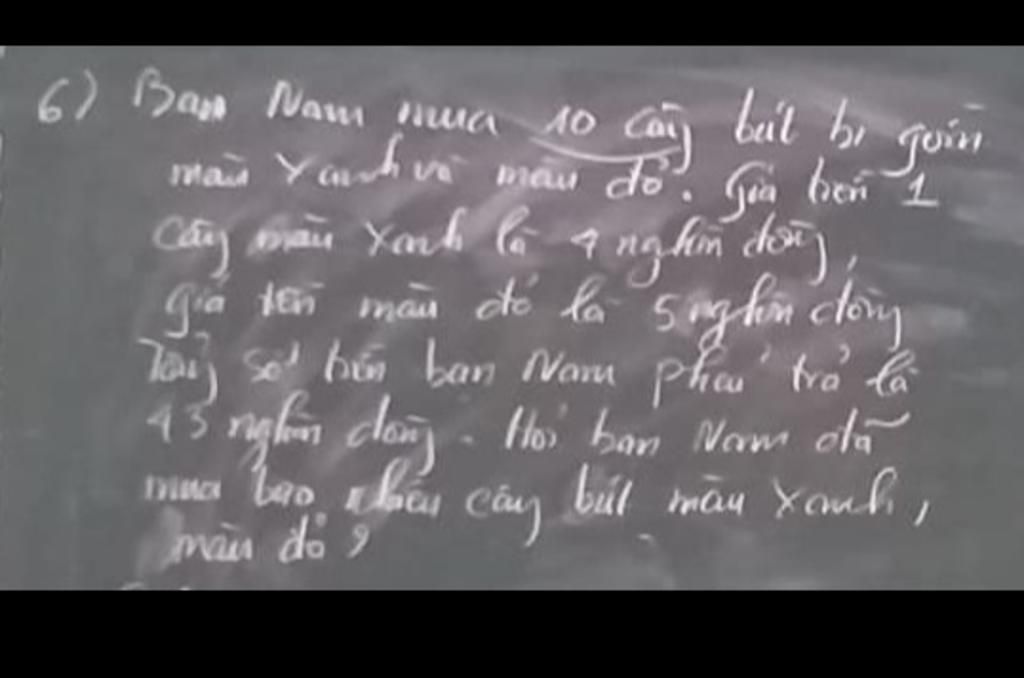 6) Bạn Nam mua 10 cây bút bi gồm
màu xanh và màu đỏ. Giá tiền 1
cây màu xanh là 4 nghìn đồng,
giá tiền màu đỏ là 5 nghìn đồng
Tổng số tiền bạn Nam phải trả là
43 nghìn đồng. Hỏi bạn Nam đã
mua bao nhiêu cây bút màu xanh,
màu đỏ?